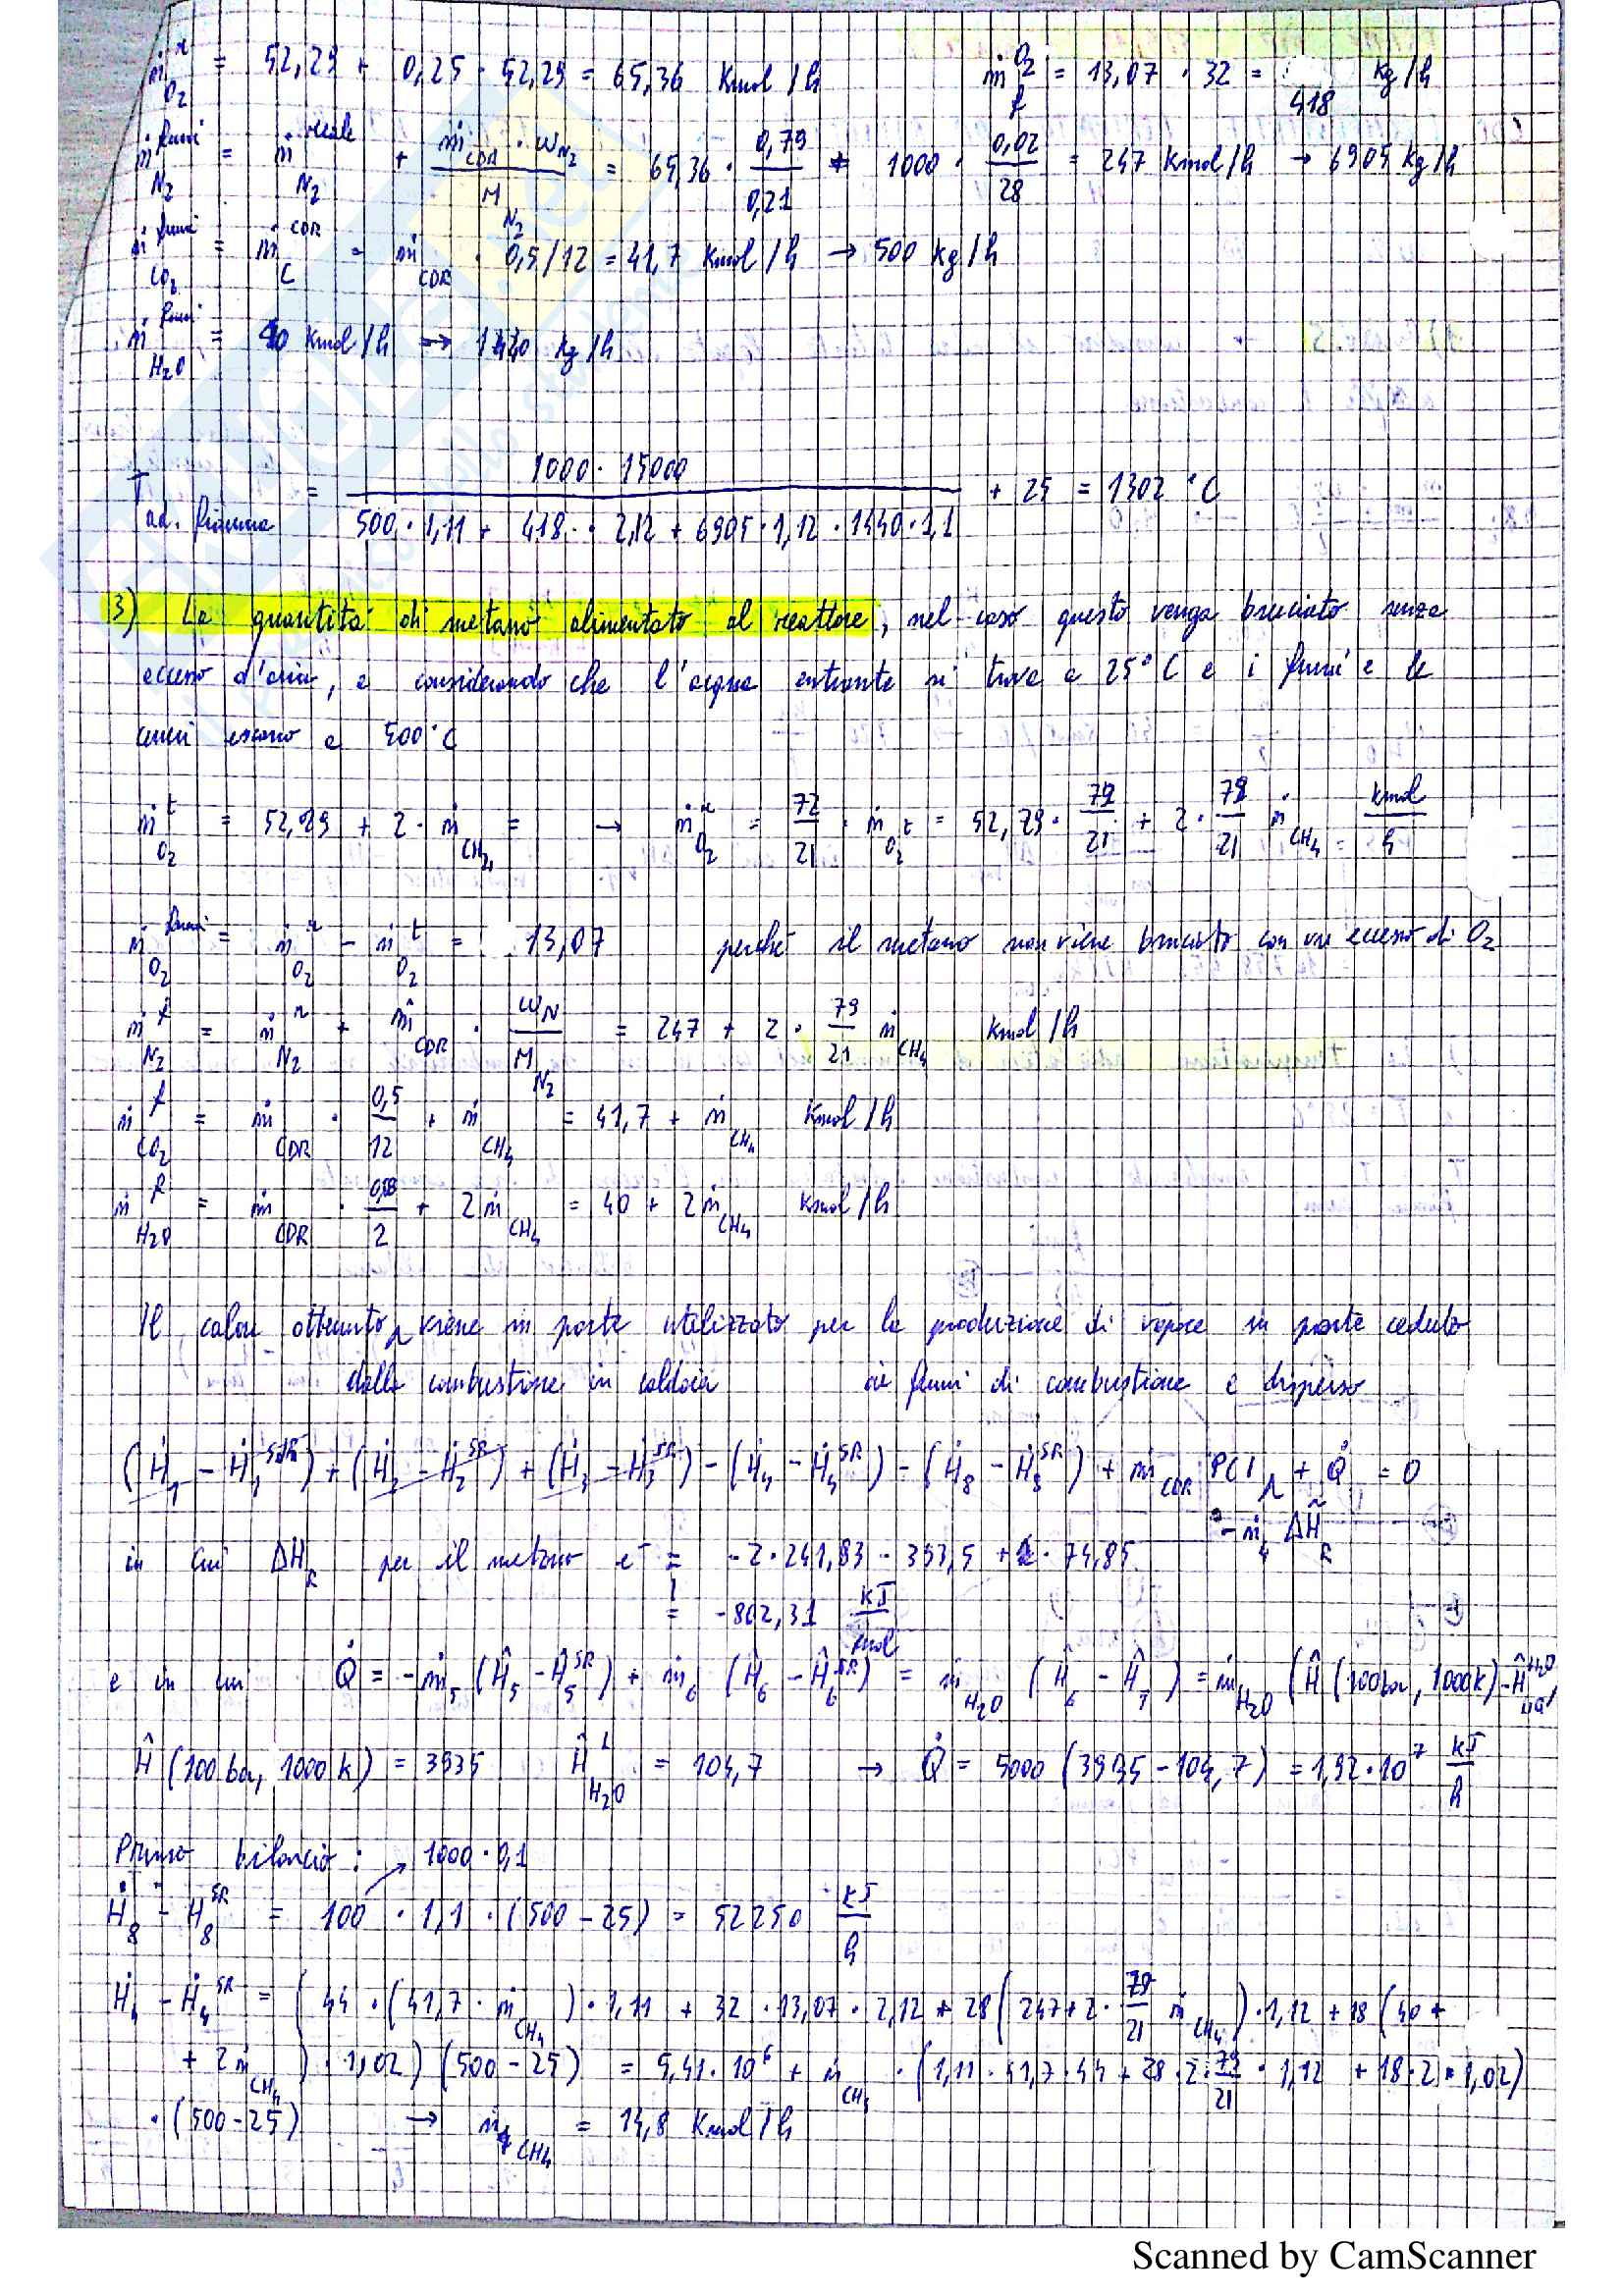 ṅ_O2^r = 52,29 + 0,25 · 52,29 = 65,36 Kmol/h ṁ_f^O2 = 13,07 · 32 = 418 kg/h
ṅ_N2^fumi = ṅ_N2^reale + ṁ_CDR · ω_N2 / M_N2 = 65,36 · 0,79/0,21 + 1000 · 0,02/28 = 247 Kmol/h → 6905 kg/h
ṅ_CO2^fumi = ṅ_C^CDR = ṁ_CDR · 0,5/12 = 41,7 Kmol/h → 500 kg/h
ṅ_H2O^fumi = 40 Kmol/h → 1440 kg/h
T_ad. fiamma = 1000 · 15000 / (500 · 1,11 + 418 · 2,12 + 6905 · 1,12 · 1440 · 1,1) + 25 = 1302 °C
3) La quantità di metano alimentato al reattore, nel caso questo venga bruciato senza
eccesso d'aria, e considerando che l'acqua entrante si trova a 25°C e i fumi e le
ceneri escano a 500°C
ṅ_O2^t = 52,29 + 2 · ṅ_CH4 = → ṅ_O2^r = 72/21 · ṅ_O2^t = 52,29 · 79/21 + 2 · 79/21 ṅ_CH4 = kmol/h
ṅ_O2^fumi = ṅ_O2^r − ṅ_O2^t = 13,07 perché il metano non viene bruciato con un eccesso di O2
ṅ_N2^f = ṅ_N2^r + ṁ_CDR · ω_N / M_N2 = 247 + 2 · 79/21 ṅ_CH4 Kmol/h
ṅ_CO2^f = ṁ_CDR · 0,5/12 + ṅ_CH4 = 41,7 + ṅ_CH4 Kmol/h
ṅ_H2O^f = ṁ_CDR · 0,08/2 + 2ṅ_CH4 = 40 + 2ṅ_CH4 Kmol/h
Il calore ottenuto viene in parte utilizzato per la produzione di vapore in parte ceduto
dalla combustione in caldaia ai fumi di combustione e disperso
(Ḣ1 − Ḣ1^SR) + (Ḣ2 − Ḣ2^SR) + (Ḣ3 − Ḣ3^SR) − (Ḣ4 − Ḣ4^SR) − (Ḣ8 − Ḣ8^SR) + ṁ_CDR PCI + Q̇ = 0
− ṅ ΔH̃_R
in cui ΔH_R per il metano è = −2 · 241,83 − 393,5 + 1 · 74,85
= −802,31 kJ/mol
e in cui Q̇ = −ṁ5 (Ĥ5 − Ĥ5^SR) + ṁ6 (Ĥ6 − Ĥ6^SR) = ṁ_H2O (Ĥ6 − Ĥ7) = ṁ_H2O (Ĥ (100bar, 1000K) − Ĥ^H2O
Ĥ (100 bar, 1000 K) = 3935 Ĥ_H2O^L = 104,7 → Q̇ = 5000 (3935 − 104,7) = 1,92 · 10^7 kJ/h
Primo bilancio: 1000 · 0,1
Ḣ8 − Ḣ8^SR = 100 · 1,1 · (500 − 25) = 52250 kJ/h
Ḣ4 − Ḣ4^SR = (44 · (41,7 · ṅ_CH4) · 1,11 + 32 · 13,07 · 2,12 + 28 (247 + 2 · 79/21 ṅ_CH4) · 1,12 + 18 (40 +
+ 2ṅ_CH4) · 1,02) (500 − 25) = 5,41 · 10^6 + ṅ_CH4 · (1,11 · 41,7 · 44 + 28 · 2 · 79/21 · 1,12 + 18 · 2 · 1,02)
· (500 − 25) → ṅ_CH4 = 14,8 Kmol/h
Scanned by CamScanner